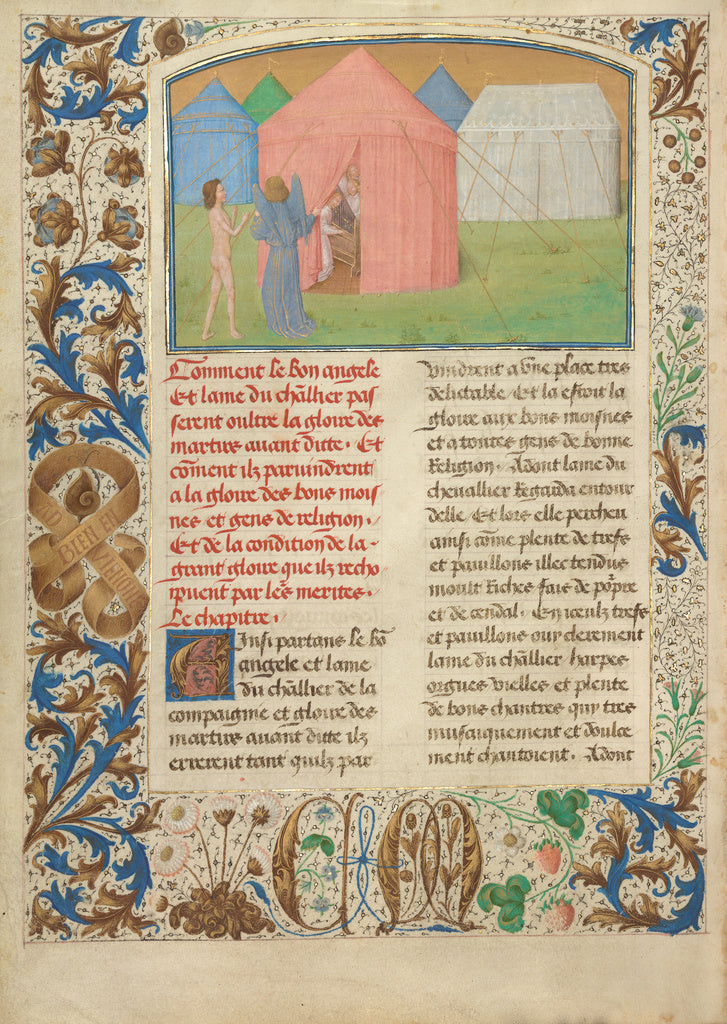 Comment le bon angele
Et lame du chãllier pas
serent oultre la gloire des
martirs auant ditte . Et
cõment ilz paruindrent
a la gloire des bons mois
nes et gens de religion .
Et de la condition de la
grant gloire que ilz recho
ipuent par les merites .
Le chapitre .
Ainsi partans le bõ
angele et lame
du chãllier de la
compaignie et gloire des
martirs auant ditte ilz
errerent tant quilz par
uindrent a vne place tres
delictable / Et la estoit la
gloire aux bons moisnes
et a toutes gens de bonne
Religion . Adont lame du
cheuallier Regarda entour
delle / Et lors elle percheu
ainsi cõme plente de trefs
et pauillons illec tendus
moult Riches fais de põpre
et de cendal . En iceulz trefs
et pauillons ouy clerement
lame du chãllier harpes
orgues vielles et plente
de bons chantres quy tres
musaiquement et doulce
ment chantoient . Adont
BIEN EN
AVIENGNE
CM